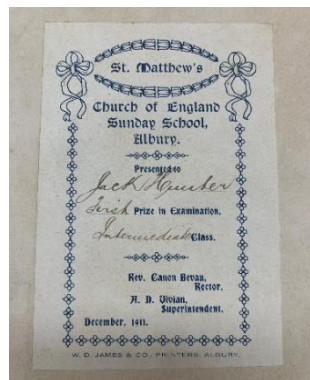 St. Matthew's
Church of England
Sunday School,
Albury.
Presented to
Jack Hunter
First Prize in Examination,
Intermediate Class.
Rev. Canon Bevan,
Rector.
A. D. Vivian,
Superintendent.
December, 1911.
W. D. JAMES & CO., PRINTERS, ALBURY.